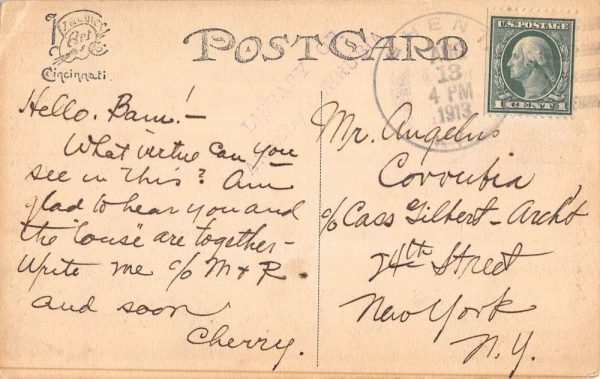 Cincinnati.
POST CARD
U.S. POSTAGE
1 CENT 1
13
4 PM
1913
LIBRARY OF
Hello. Bam!—
What virtue can you
see in this? Am
glad to hear you and
the "ouse" are together—
Write me c/o M + R.
and soon
Cherry.
Mr. Angelus
Corrubia
c/o Cass Gilbert - Archt
24th Street
New York
N.Y.